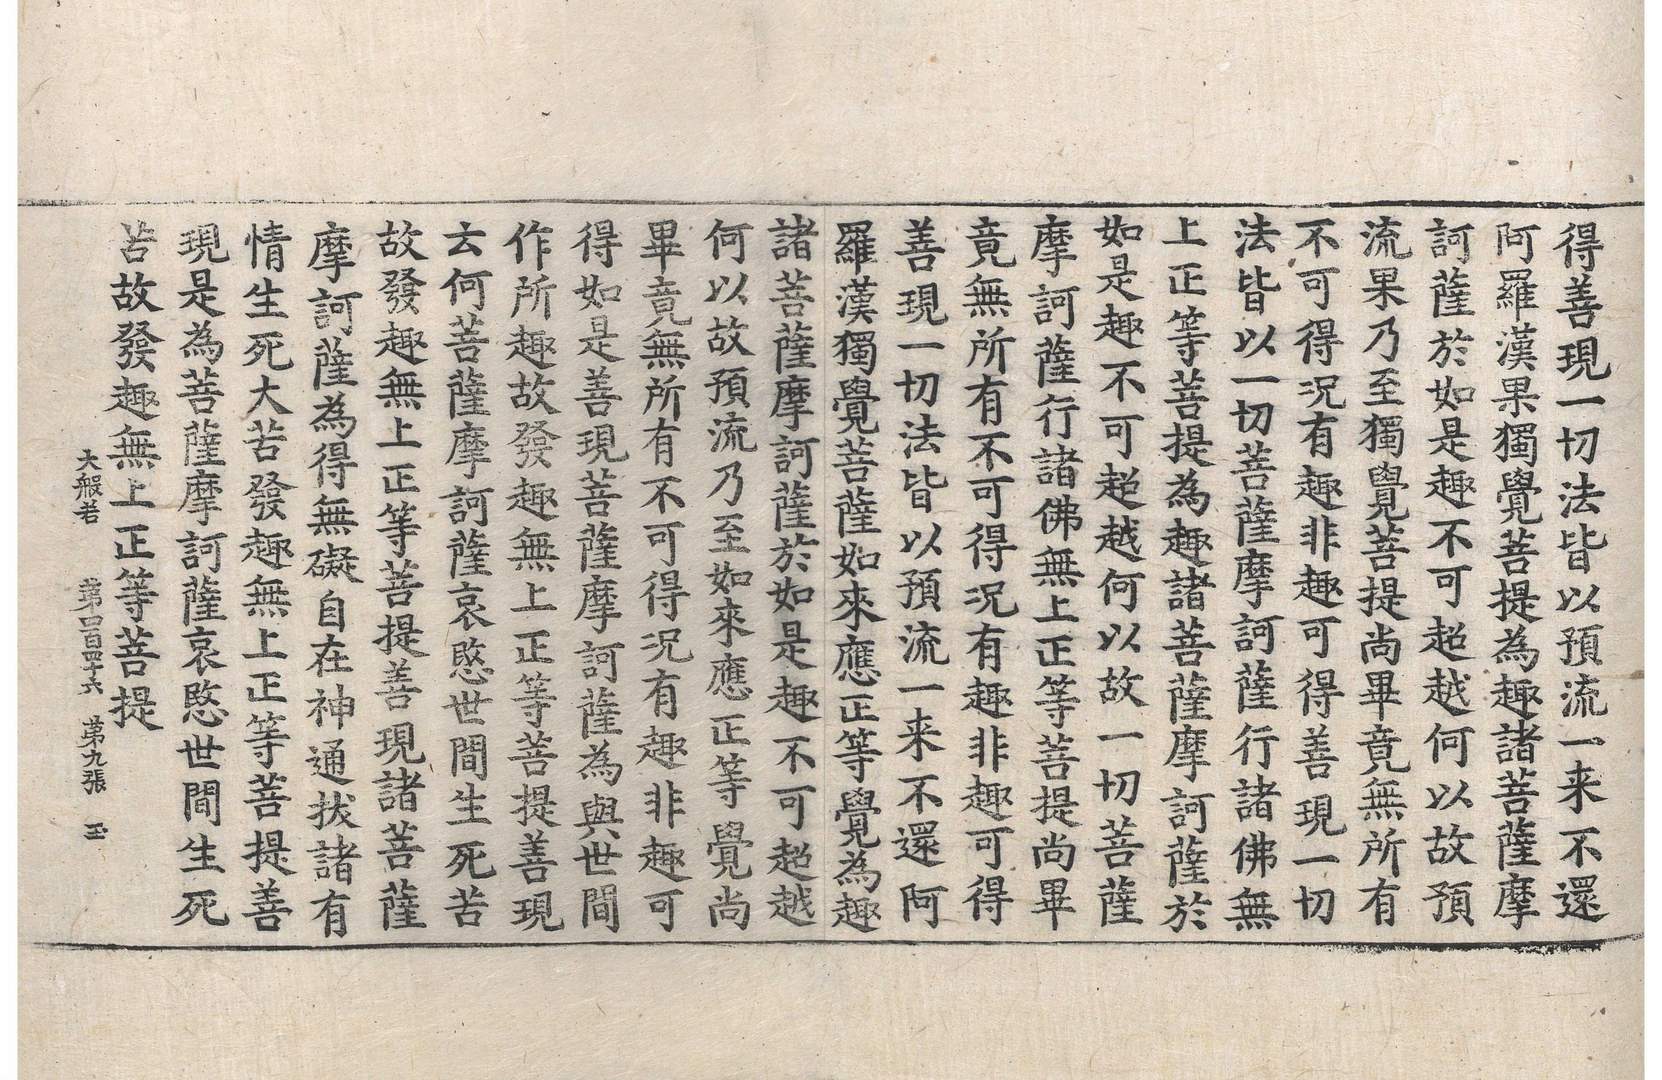 得善現一切法皆以預流一来不還
阿羅漢果獨覺菩提為趣諸菩薩摩
訶薩於如是趣不可超越何以故預
流果乃至獨覺菩提尚畢竟無所有
不可得況有趣非趣可得善現一切
法皆以一切菩薩摩訶薩行諸佛無
上正等菩提為趣諸菩薩摩訶薩於
如是趣不可超越何以故一切菩薩
摩訶薩行諸佛無上正等菩提尚畢
竟無所有不可得況有趣非趣可得
善現一切法皆以預流一来不還阿
羅漢獨覺菩薩如來應正等覺為趣
諸菩薩摩訶薩於如是趣不可超越
何以故預流乃至如來應正等覺尚
畢竟無所有不可得況有趣非趣可
得如是善現菩薩摩訶薩為與世間
作所趣故發趣無上正等菩提善現
云何菩薩摩訶薩哀愍世間生死苦
故發趣無上正等菩提善現諸菩薩
摩訶薩為得無礙自在神通拔諸有
情生死大苦發趣無上正等菩提善
現是為菩薩摩訶薩哀愍世間生死
苦故發趣無上正等菩提
大般若 第四百四十六 第九張 玉